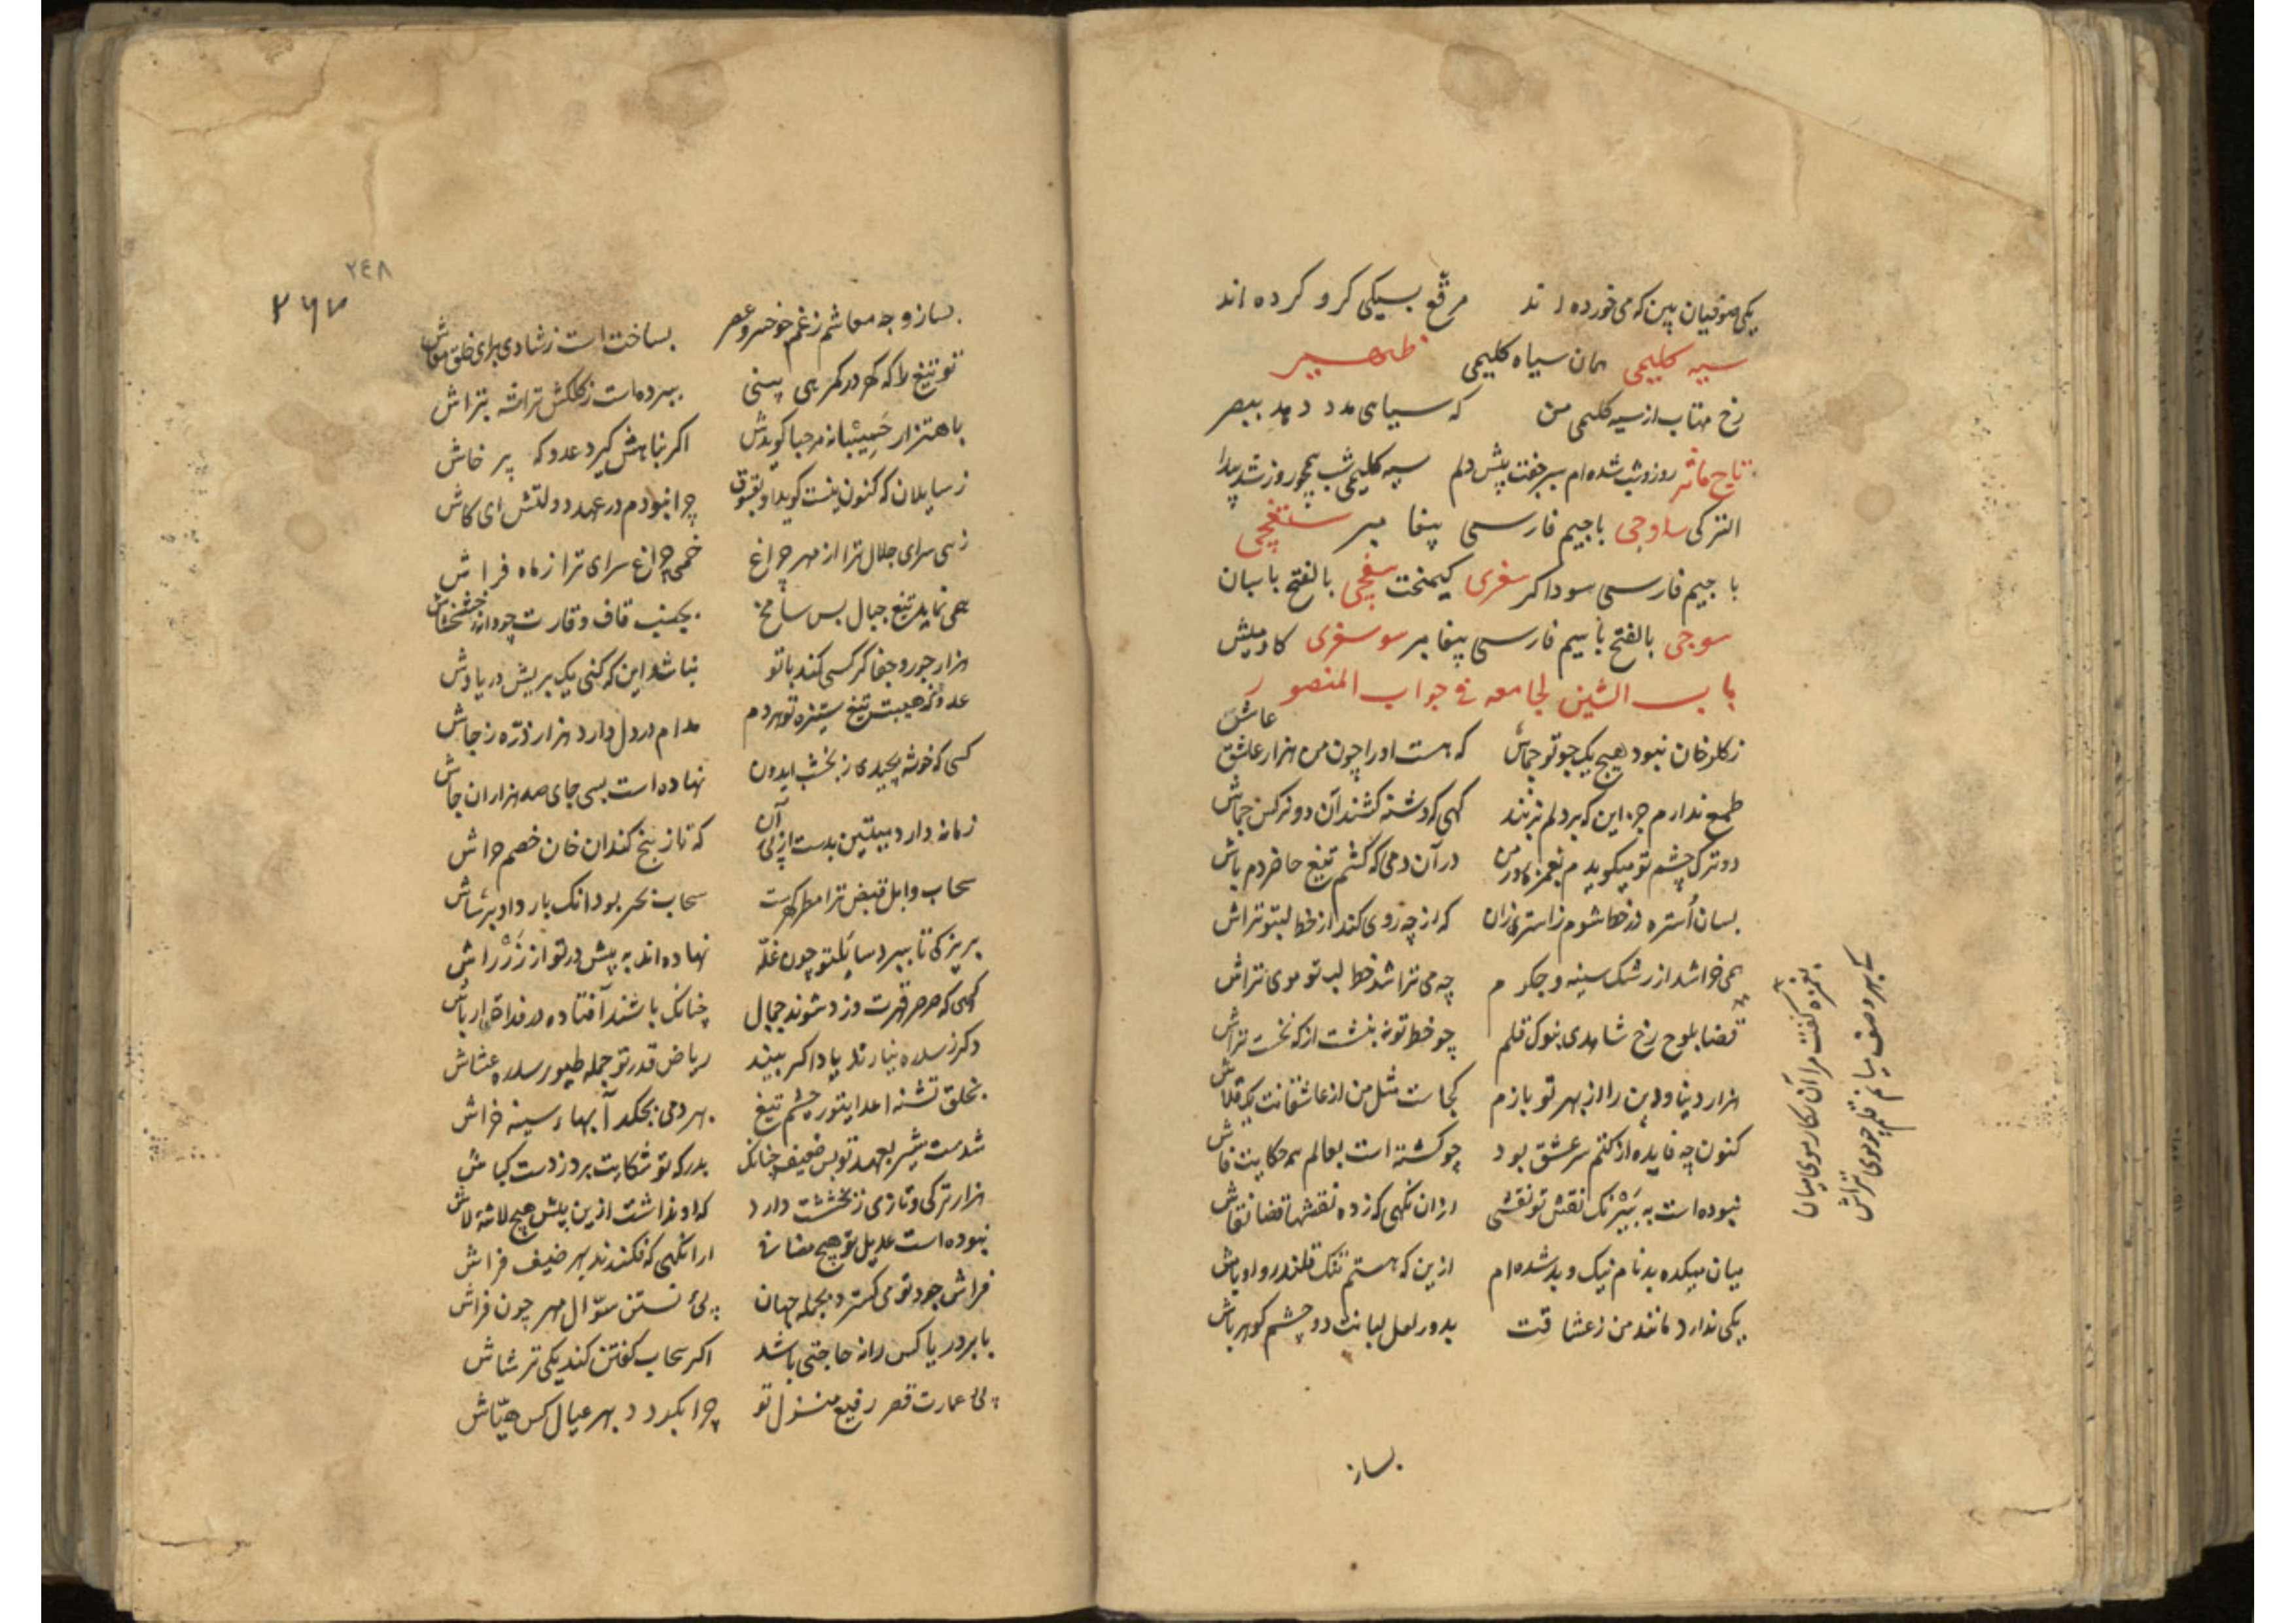 یکی صوفیان بین که می خورده اند مرقع بسیکی کرو کرده اند
سیه کلیمی همان سیاه کلیمی ظهیر
رخ متاب از سیه کلیمی من که سیاهی مدد دهد ببصر
تاج مآثر روز و شب شده ام سیر جفت پیش دلم سیه کلیمی شب همچو روز شد پیدا
الترکی ساوجی باجیم فارسی پیغامبر ستغچی
با جیم فارسی سوداکر سغری کیمخت سغچی بالفتح باسبان
سوجی بالفتح باسیم فارسی پیغامبر سوسغری کاومیش
باب الشین لجامعه فی جواب المنصور
عاش
زکلرخان نبود هیچ یک چو تو جماش که هست او را چون من هزار عاشق
طمع ندارم جز این که بر دلم نزنند کهی که دشنه کشند آن دو نرکس جماش
دو ترک چشم تو میکویدم بغمزه در آن دمی که کشم تیغ حاضر دم باش
بسان استره در خطا شوم ز استری زان که از چه روی کند از خط لبتو تراش
همی خراشد از رشک سینه و جکرم چه می تراشد خط لب تو موی تراش
قضا بلوح رخ شاهدی بنوک قلم چو خط تو نه بنشت از که نخست تراش
هزار دینا و دین را از بهر تو بازم کجاست مثل من از عاشقانت یک قلاش
کنون چه فایده از کتم سر عشق بود چو کشته است بعالم همه حکایت فاش
نبوده است به نیرنک نقش تو نقشی از آن نکهی که زده نقشها قضا نقاش
میان میکده بدنام نیک و بد شده ام ازین که هستم تنک قلندر و اوباش
یکی ندارد مانند من زعشاقت بدور لعل لبانت دو چشم کوهر باش
بغمزه کفت مرا آن نکار موی میان
که بهر وصف میانم قلم چو موی تراش
بساز
۲٤۸
۲۶۷
بساز وجه معاشم زغم خو خسرو عصر بساخت است ز شادی برای خلق معاش
تو تیغ را که کهر در کمر همی بینی ببرده است زکلکش تراشه بتراش
باهتزار مرحبا کویدش اکر بناهش کیرد عدو که پرخاش
ز سایلان که کنون نیست کوید او بفسوق چرا نبودم در عهد دولتش ای کاش
زهی سرای جلال ترا از مهر چراغ خهی چراغ سرای ترا ز ماه فراش
همی نماید تیغ جبال بس شامخ بجنب قاف وقارت چو دانه خشخاش
هزار جور و جفا کر کسی کند با تو نباشد این که کنی یک بریش در پاداش
عدو که هیبت تیغ ستیزه تو بردم مدام در دل دارد هزار ذره ز جاش
کسی که خوشه بچیدی ز بخشب ایدون نهاده است بسی جای صد هزاران جاش
زمانه دارد بیلتین بدست از پی آن که تاز بیخ کند آن خان خصم حراش
سحاب وابل فیض ترا مطر کهرست سحاب بحر بود انک بارد او برشاش
بریز کی تا ببرد سایلتو چون غله نهاده اند به پیش در تو از زر راش
کهی که صرصر قهرت وزد شوند جبال چنانک باشند آفتاده در فداقی ار باش
دکر ز سدره نیارند یاد اکر بینند ریاض قدر تو جمله طیور سدره عشاش
بخلق تشنه اعدا بتو ره چشم تیغ بهر دمی بچکد آبها سینه خراش
شدست شیر بعهد تو بس ضعیف چنانک بدرکه تو شکایت برد ز دست کپاش
هزار ترکی و تازی ز بخششت دارد که او نداشت ازین پیش هیچ لاشه لاش
نبوده است عدیل تو هیچ مضیافی از آنکهی که فکندند بهر ضیف فراش
فراش جود تو می کسترد بجمله جهان پی نشستن سوال مهر چون فراش
بابر در یا کس را نه حاجتی باشد اکر سحاب کفتن کند یکی ترشاش
پی عمارت قصر رفیع منزل تو چرا بکردد بهر عیال کس هیاش